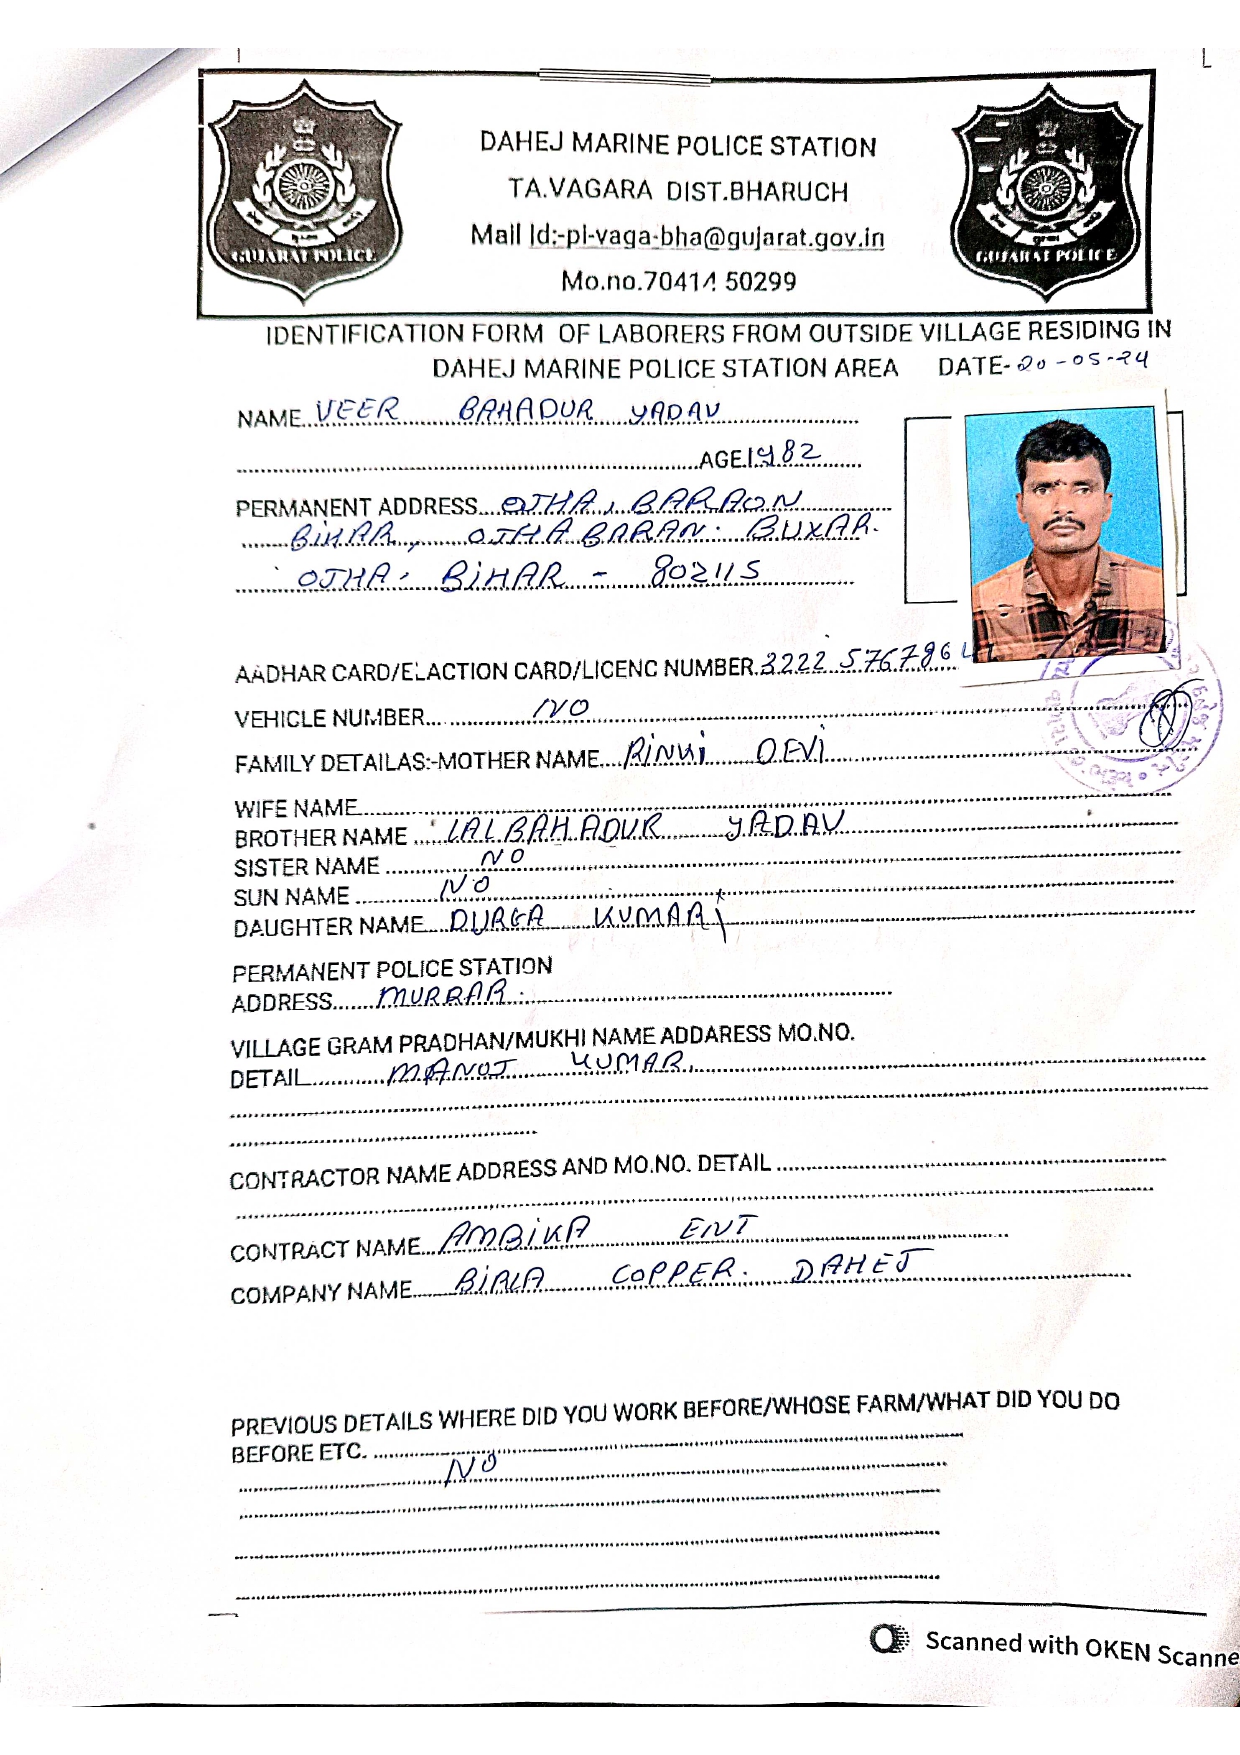 DAHEJ MARINE POLICE STATION
TA.VAGARA DIST.BHARUCH
Mail Id:-pi-vaga-bha@gujarat.gov.in
Mo.no.70414 50299
GUJARAT POLICE
GUJARAT POLICE
IDENTIFICATION FORM OF LABORERS FROM OUTSIDE VILLAGE RESIDING IN
DAHEJ MARINE POLICE STATION AREA DATE-20-05-24
NAME VEER BAHADUR YADAV
AGE 1982
PERMANENT ADDRESS OJHA, BARAON
BIHAR, OJHA BARAN. BUXAR.
OJHA. BIHAR - 802115
AADHAR CARD/ELACTION CARD/LICENC NUMBER. 3222 576786
VEHICLE NUMBER NO
FAMILY DETAILAS:-MOTHER NAME RINKI DEVI
WIFE NAME
BROTHER NAME LALBAHADUR YADAV
SISTER NAME NO
SUN NAME NO
DAUGHTER NAME DURGA KUMARI
PERMANENT POLICE STATION
ADDRESS MURRAR.
VILLAGE GRAM PRADHAN/MUKHI NAME ADDARESS MO.NO.
DETAIL MANOJ KUMAR.
CONTRACTOR NAME ADDRESS AND MO.NO. DETAIL
CONTRACT NAME AMBIKA ENT
COMPANY NAME BIRLA COPPER. DAHEJ
PREVIOUS DETAILS WHERE DID YOU WORK BEFORE/WHOSE FARM/WHAT DID YOU DO
BEFORE ETC.
NO
Scanned with OKEN Scanne